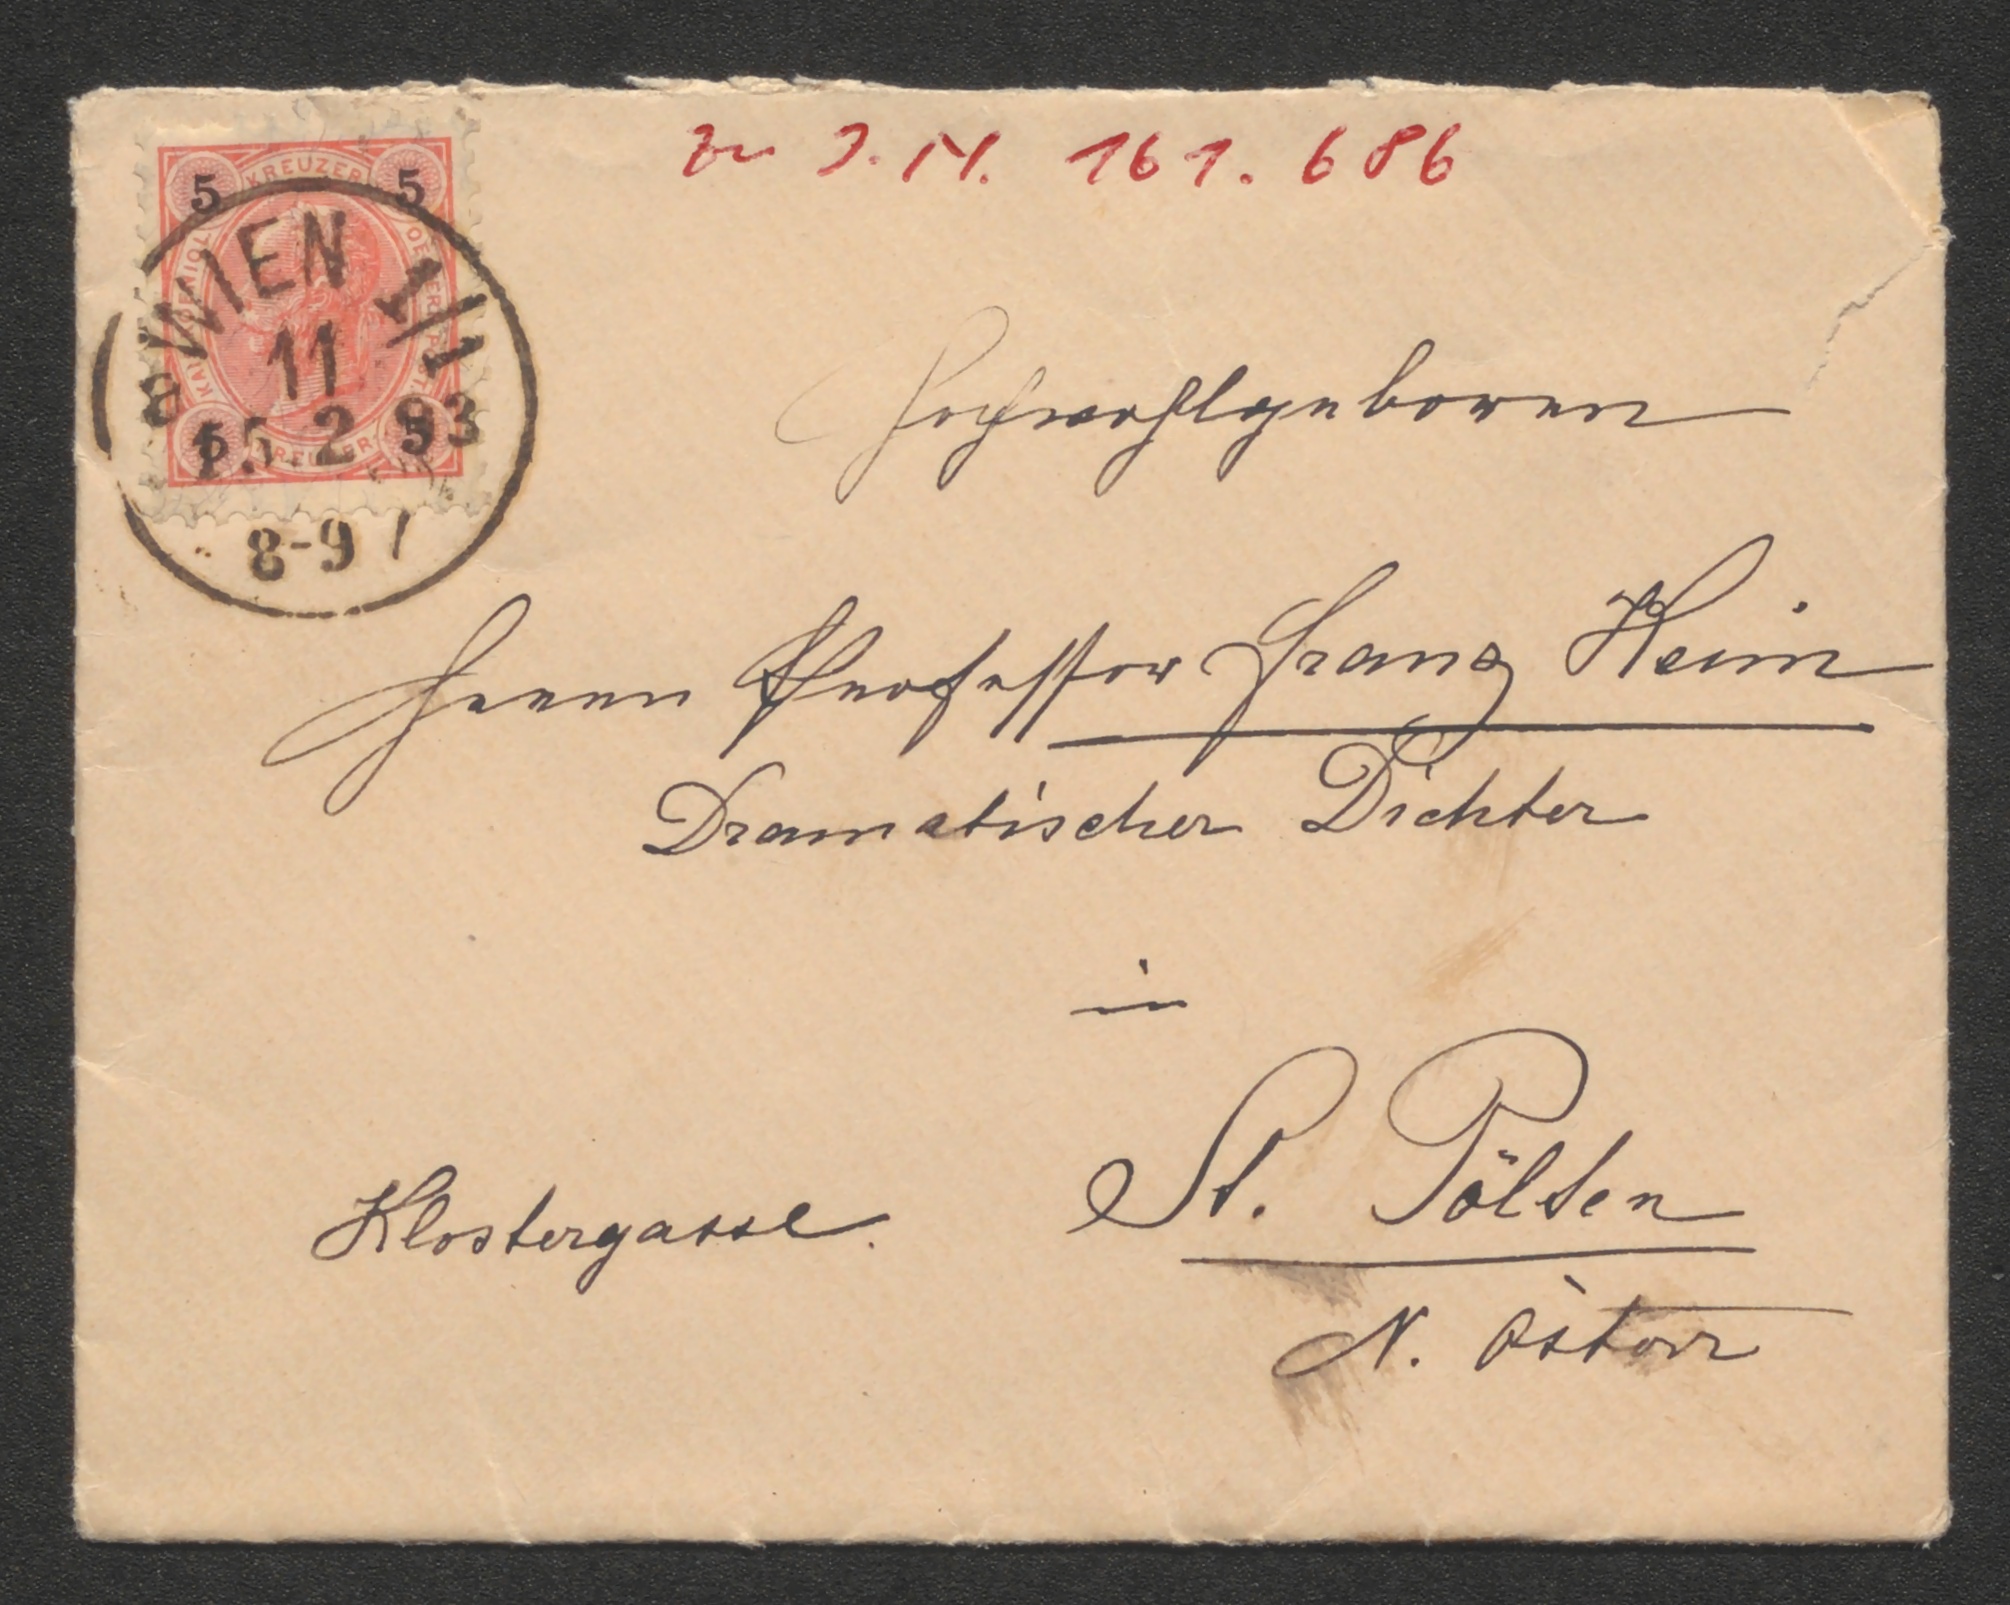 zu J.N. 161.686
5 KREUZER 5
WIEN 1/1
11
15.2.93
8-9
5 5
Hochwohlgeboren
Herrn Professor Franz Keim
Dramatischer Dichter
in
St. Pölten
Klostergasse.
N. Österr